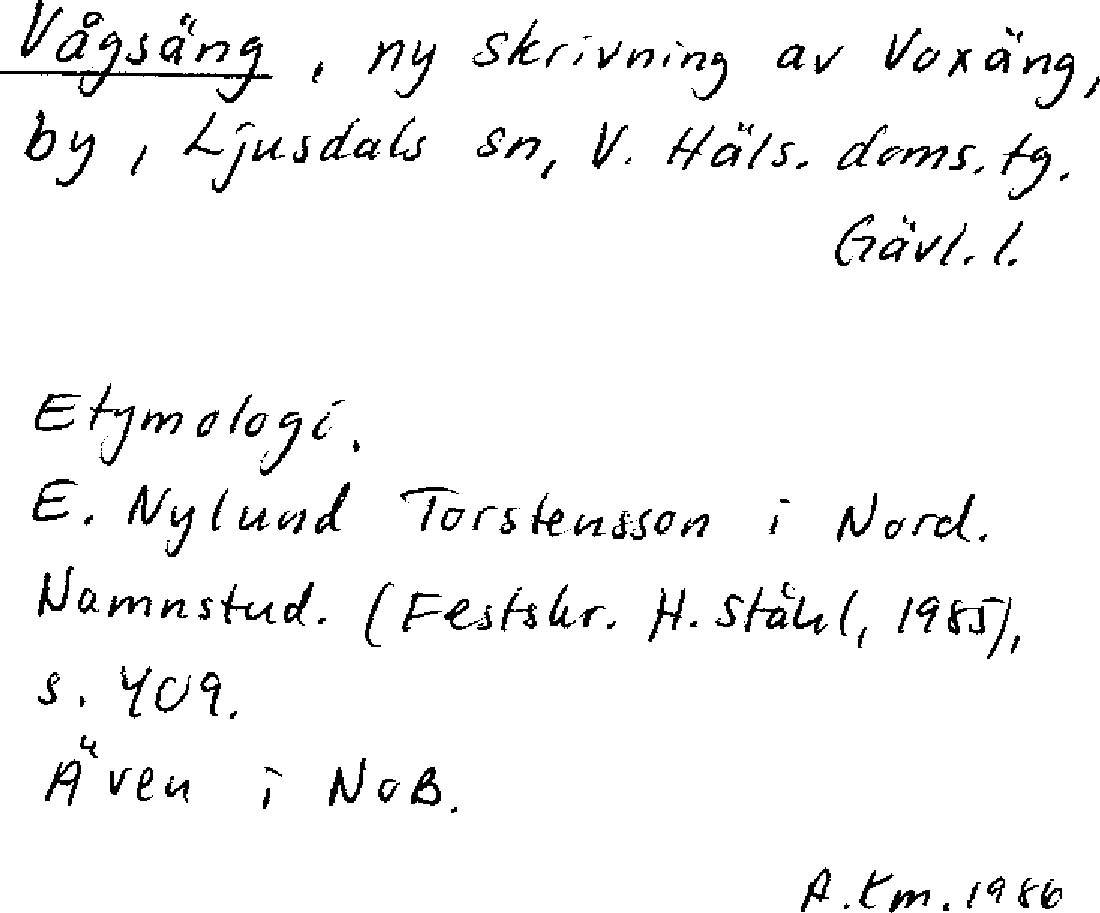 Vågsäng, ny skrivning av Voxäng,
by, Ljusdals sn, V. Häls. doms. tg.
Gävl. l.
Etymologi.
E. Nylund Torstensson i Nord.
Namnstud. (Festskr. H. Ståhl, 1985),
s. 409.
Även i NoB.
A.Km. 1986